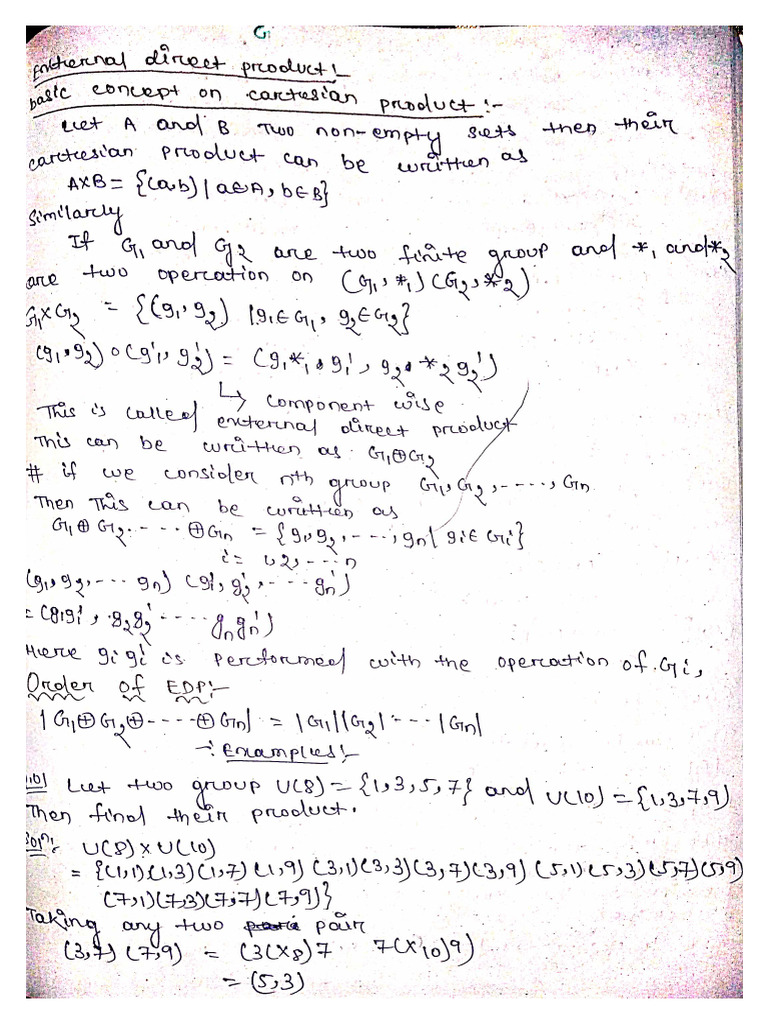 G
External direct product :-
basic concept on cartesian product :-
Let A and B Two non-empty sets then their
cartesian product can be written as
A×B = {(a,b) | a∈A, b∈B}
Similarly
If G₁ and G₂ are two finite group and *₁ and *₂
are two operation on (G₁, *₁) (G₂, *₂)
G₁×G₂ = {(g₁, g₂) | g₁∈G₁, g₂∈G₂}
(g₁, g₂) o (g₁', g₂') = (g₁ *₁ g₁', g₂ *₂ g₂')
↳ component wise
This is called external direct product
This can be written as G₁⊕G₂
# if we consider nth group G₁, G₂, ----, Gn
Then This can be written as
G₁⊕G₂ ----- ⊕Gn = {g₁, g₂, ---, gn | gi ∈ Gi}
i = 1, 2, --- n
(g₁, g₂, --- gn) (g₁', g₂', ---- gn')
= (g₁g₁', g₂g₂' ----- gngn')
Here gigi' is performed with the operation of Gi,
Order of EDP:-
|G₁⊕G₂⊕----⊕Gn| = |G₁||G₂| ---- |Gn|
-: Examples:-
Let two group U(8) = {1,3,5,7} and U(10) = {1,3,7,9}
Then find their product.
Soln: U(8) × U(10)
= {(1,1)(1,3)(1,7)(1,9) (3,1)(3,3)(3,7)(3,9) (5,1)(5,3)(5,7)(5,9)
(7,1)(7,3)(7,7)(7,9)}
Taking any two pair
(3,7) (7,9) = (3(×8)7 7(×10)9)
= (5,3)